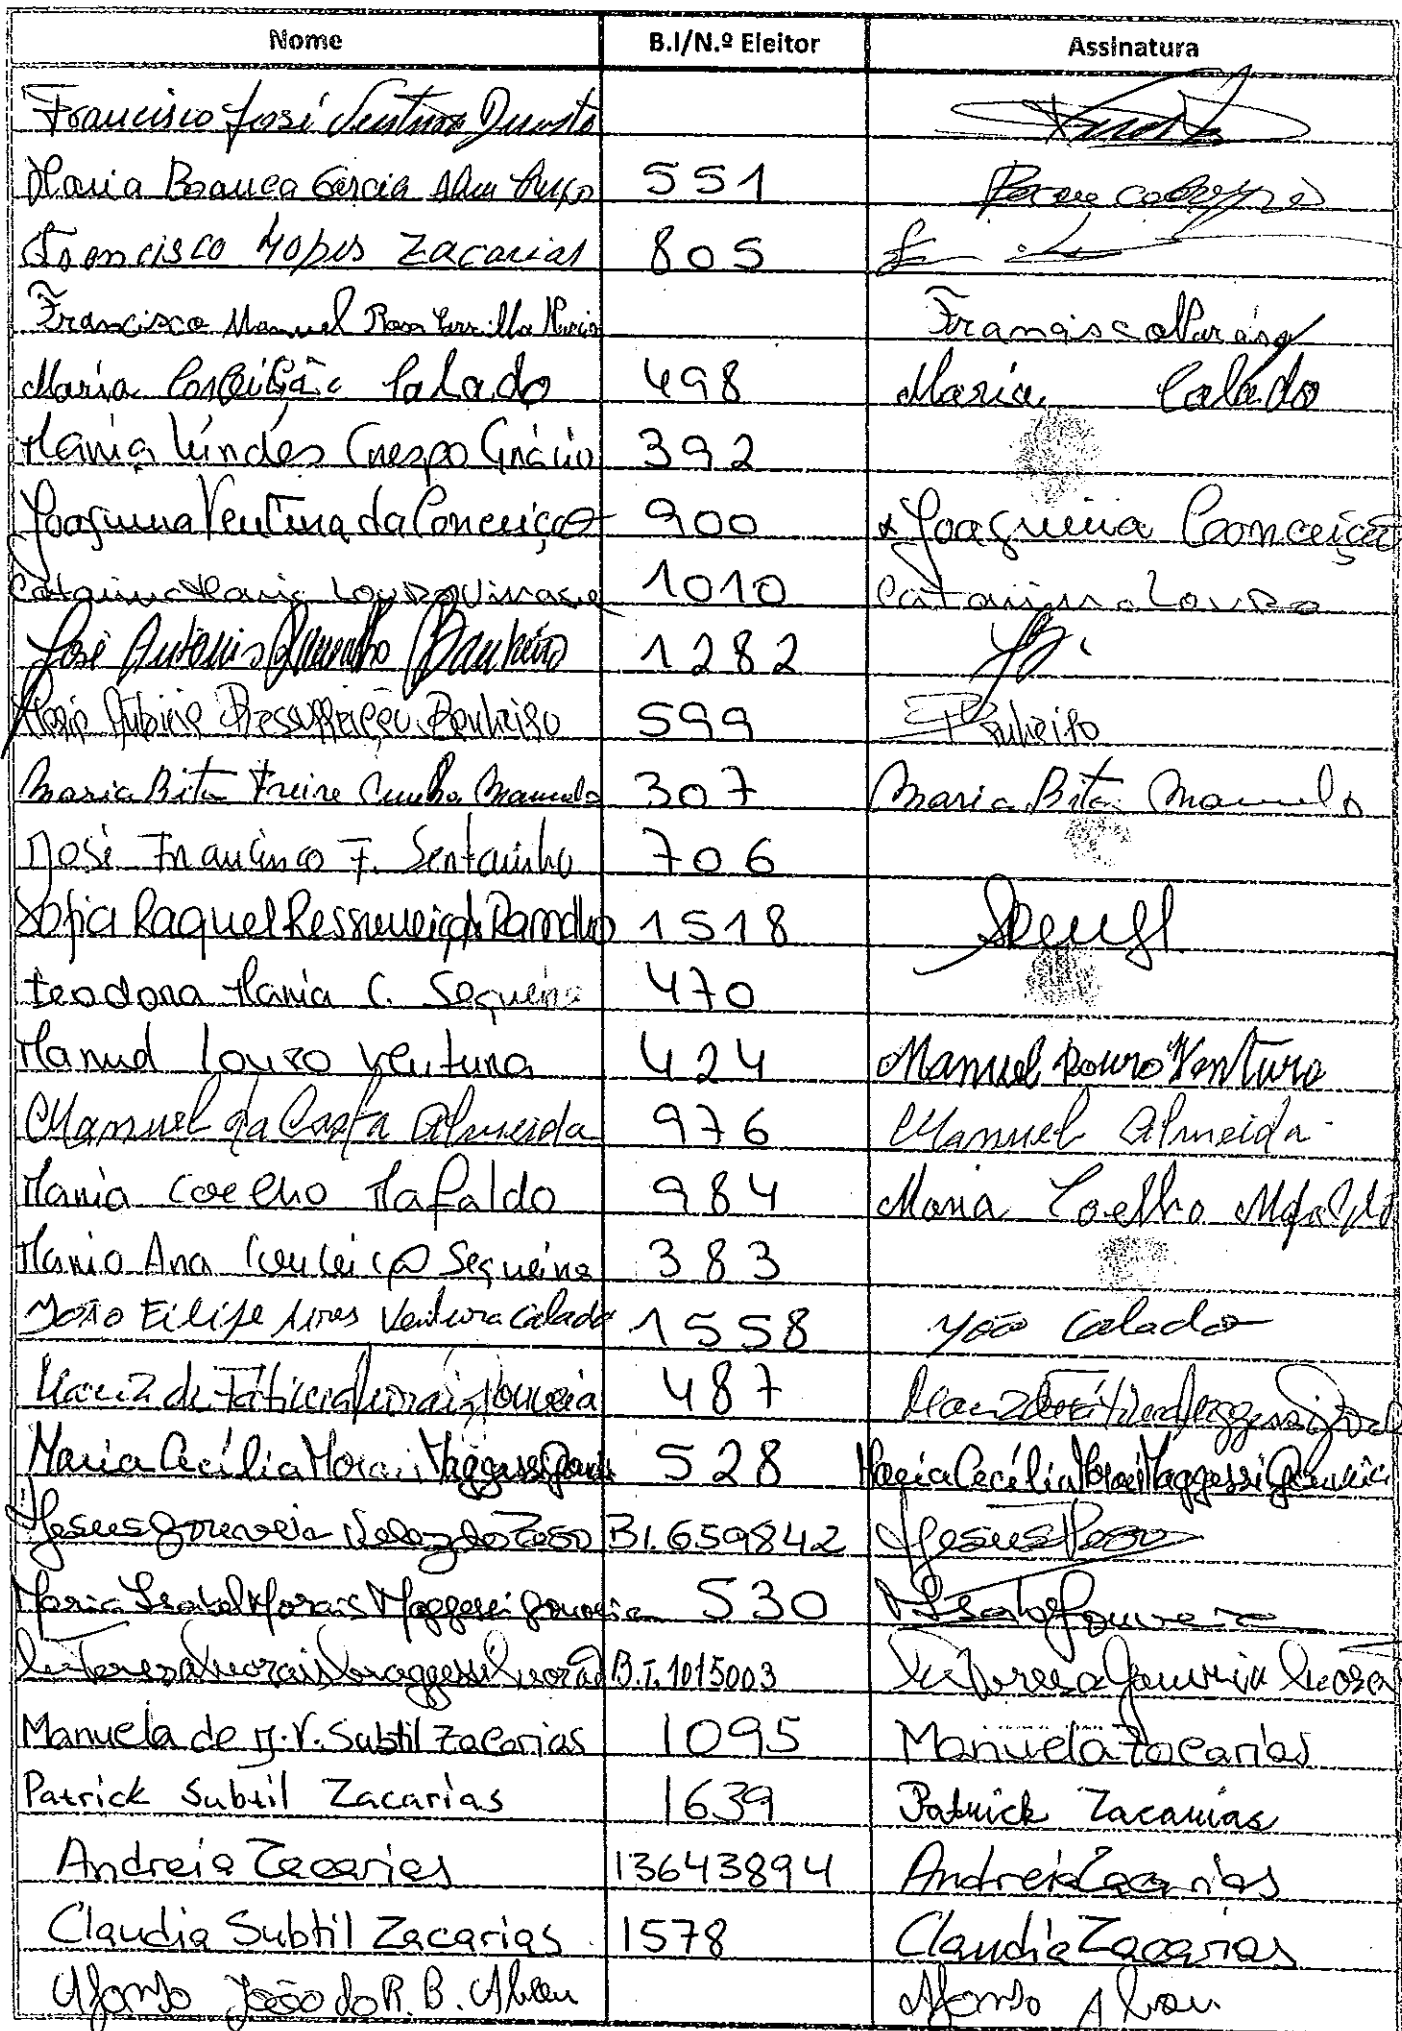 Nome B.I/N.º Eleitor Assinatura
Francisco José Ventura Duarte
Maria Branca Garcia 551
Francisco Lopes Zacarias 805
Francisco Manuel Rosa Francisco
Maria Conceição Calado 498 Maria Calado
Maria Crespo Grácio 392
Joaquina Ventura da Conceição 900 Joaquina Conceição
Catarina Maria Louro 1010 Catarina Louro
José António 1282
Ressurreição 599
Maria Rita Freire Cunha 307 Maria Rita
José Francisco F. 706
Sofia Raquel Ressurreição Ramalho 1518
Teodora Maria C. Sequeira 470
Manuel Louro Ventura 424 Manuel Louro Ventura
Manuel da Costa Almeida 976 Manuel Almeida
Maria Coelho Mafaldo 984 Maria Coelho Mafaldo
Maria Ana Conceição Sequeira 383
João Filipe Aires Ventura Calado 1558 João Calado
Maria de Gouveia 487
Maria Cecília Morais Maggessi Gouveia 528 Maria Cecília Morais Maggessi Gouveia
Jesus Gouveia B.I. 659842 Jesus
Maria Isabel Morais Maggessi Gouveia 530 Gouveia
Teresa Morais Maggessi B.I. 1015003 Teresa Gouveia
Manuela de J. V. Subtil Zacarias 1095 Manuela Zacarias
Patrick Subtil Zacarias 1639 Patrick Zacarias
Andreia Zacarias 13643894 Andreia Zacarias
Claudia Subtil Zacarias 1578 Claudia Zacarias
Afonso João do R. B. Abreu Afonso Abreu